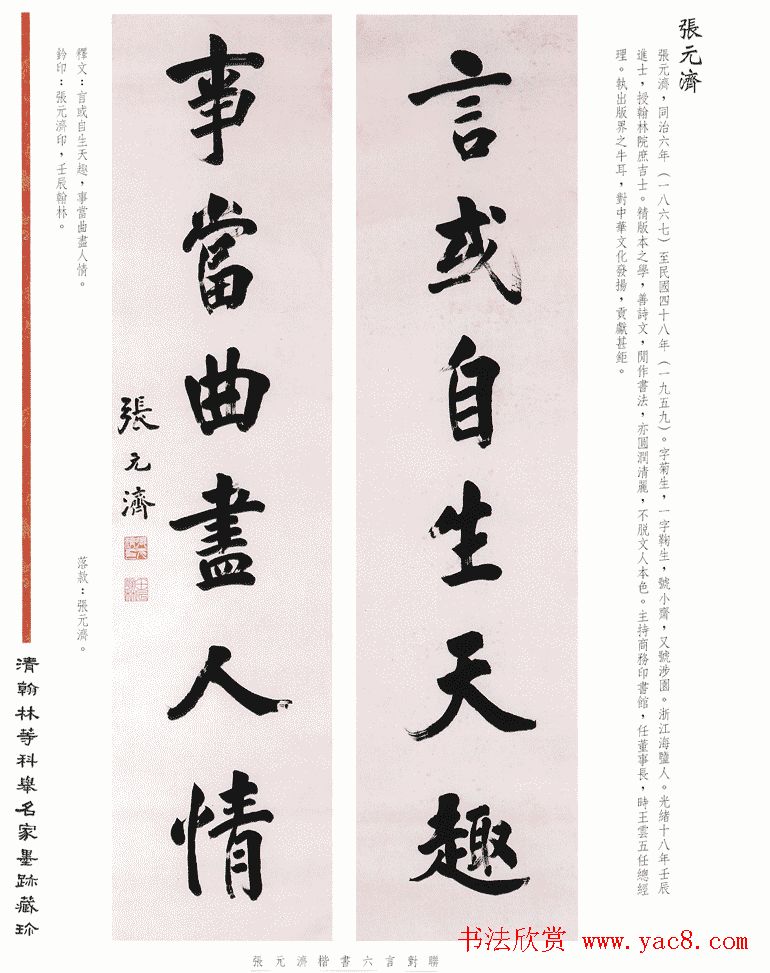 張元濟
張元濟，同治六年（一八六七）至民國四十八年（一九五九）。字菊生，一字鞠生，號小齋，又號涉園。浙江海鹽人。光緒十八年壬辰
進士，授翰林院庶吉士。精版本之學，善詩文，閒作書法，亦圓潤清麗，不脫文人本色。主持商務印書館，任董事長，時王雲五任總經
理。執出版界之牛耳，對中華文化發揚，貢獻甚鉅。
言或自生天趣
事當曲盡人情
張元濟
釋文：言或自生天趣，事當曲盡人情。
落款：張元濟。
鈐印：張元濟印，壬辰翰林。
清翰林等科舉名家墨跡藏珍
張元濟楷書六言對聯
书法欣赏 www.yac8.com